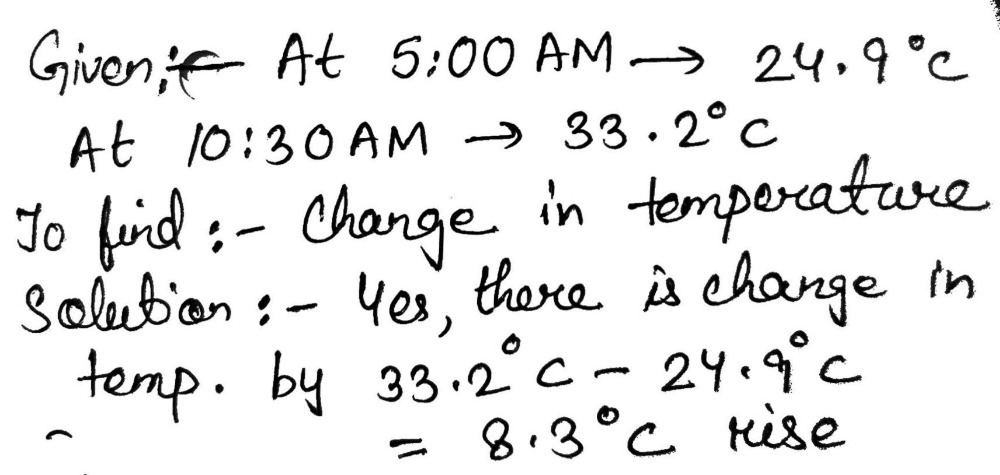 Given:- At 5:00 AM → 24.9°C
At 10:30 AM → 33.2°C
To find :- Change in temperature
Solution :- Yes, there is change in
temp. by 33.2°C - 24.9°C
= 8.3°C rise